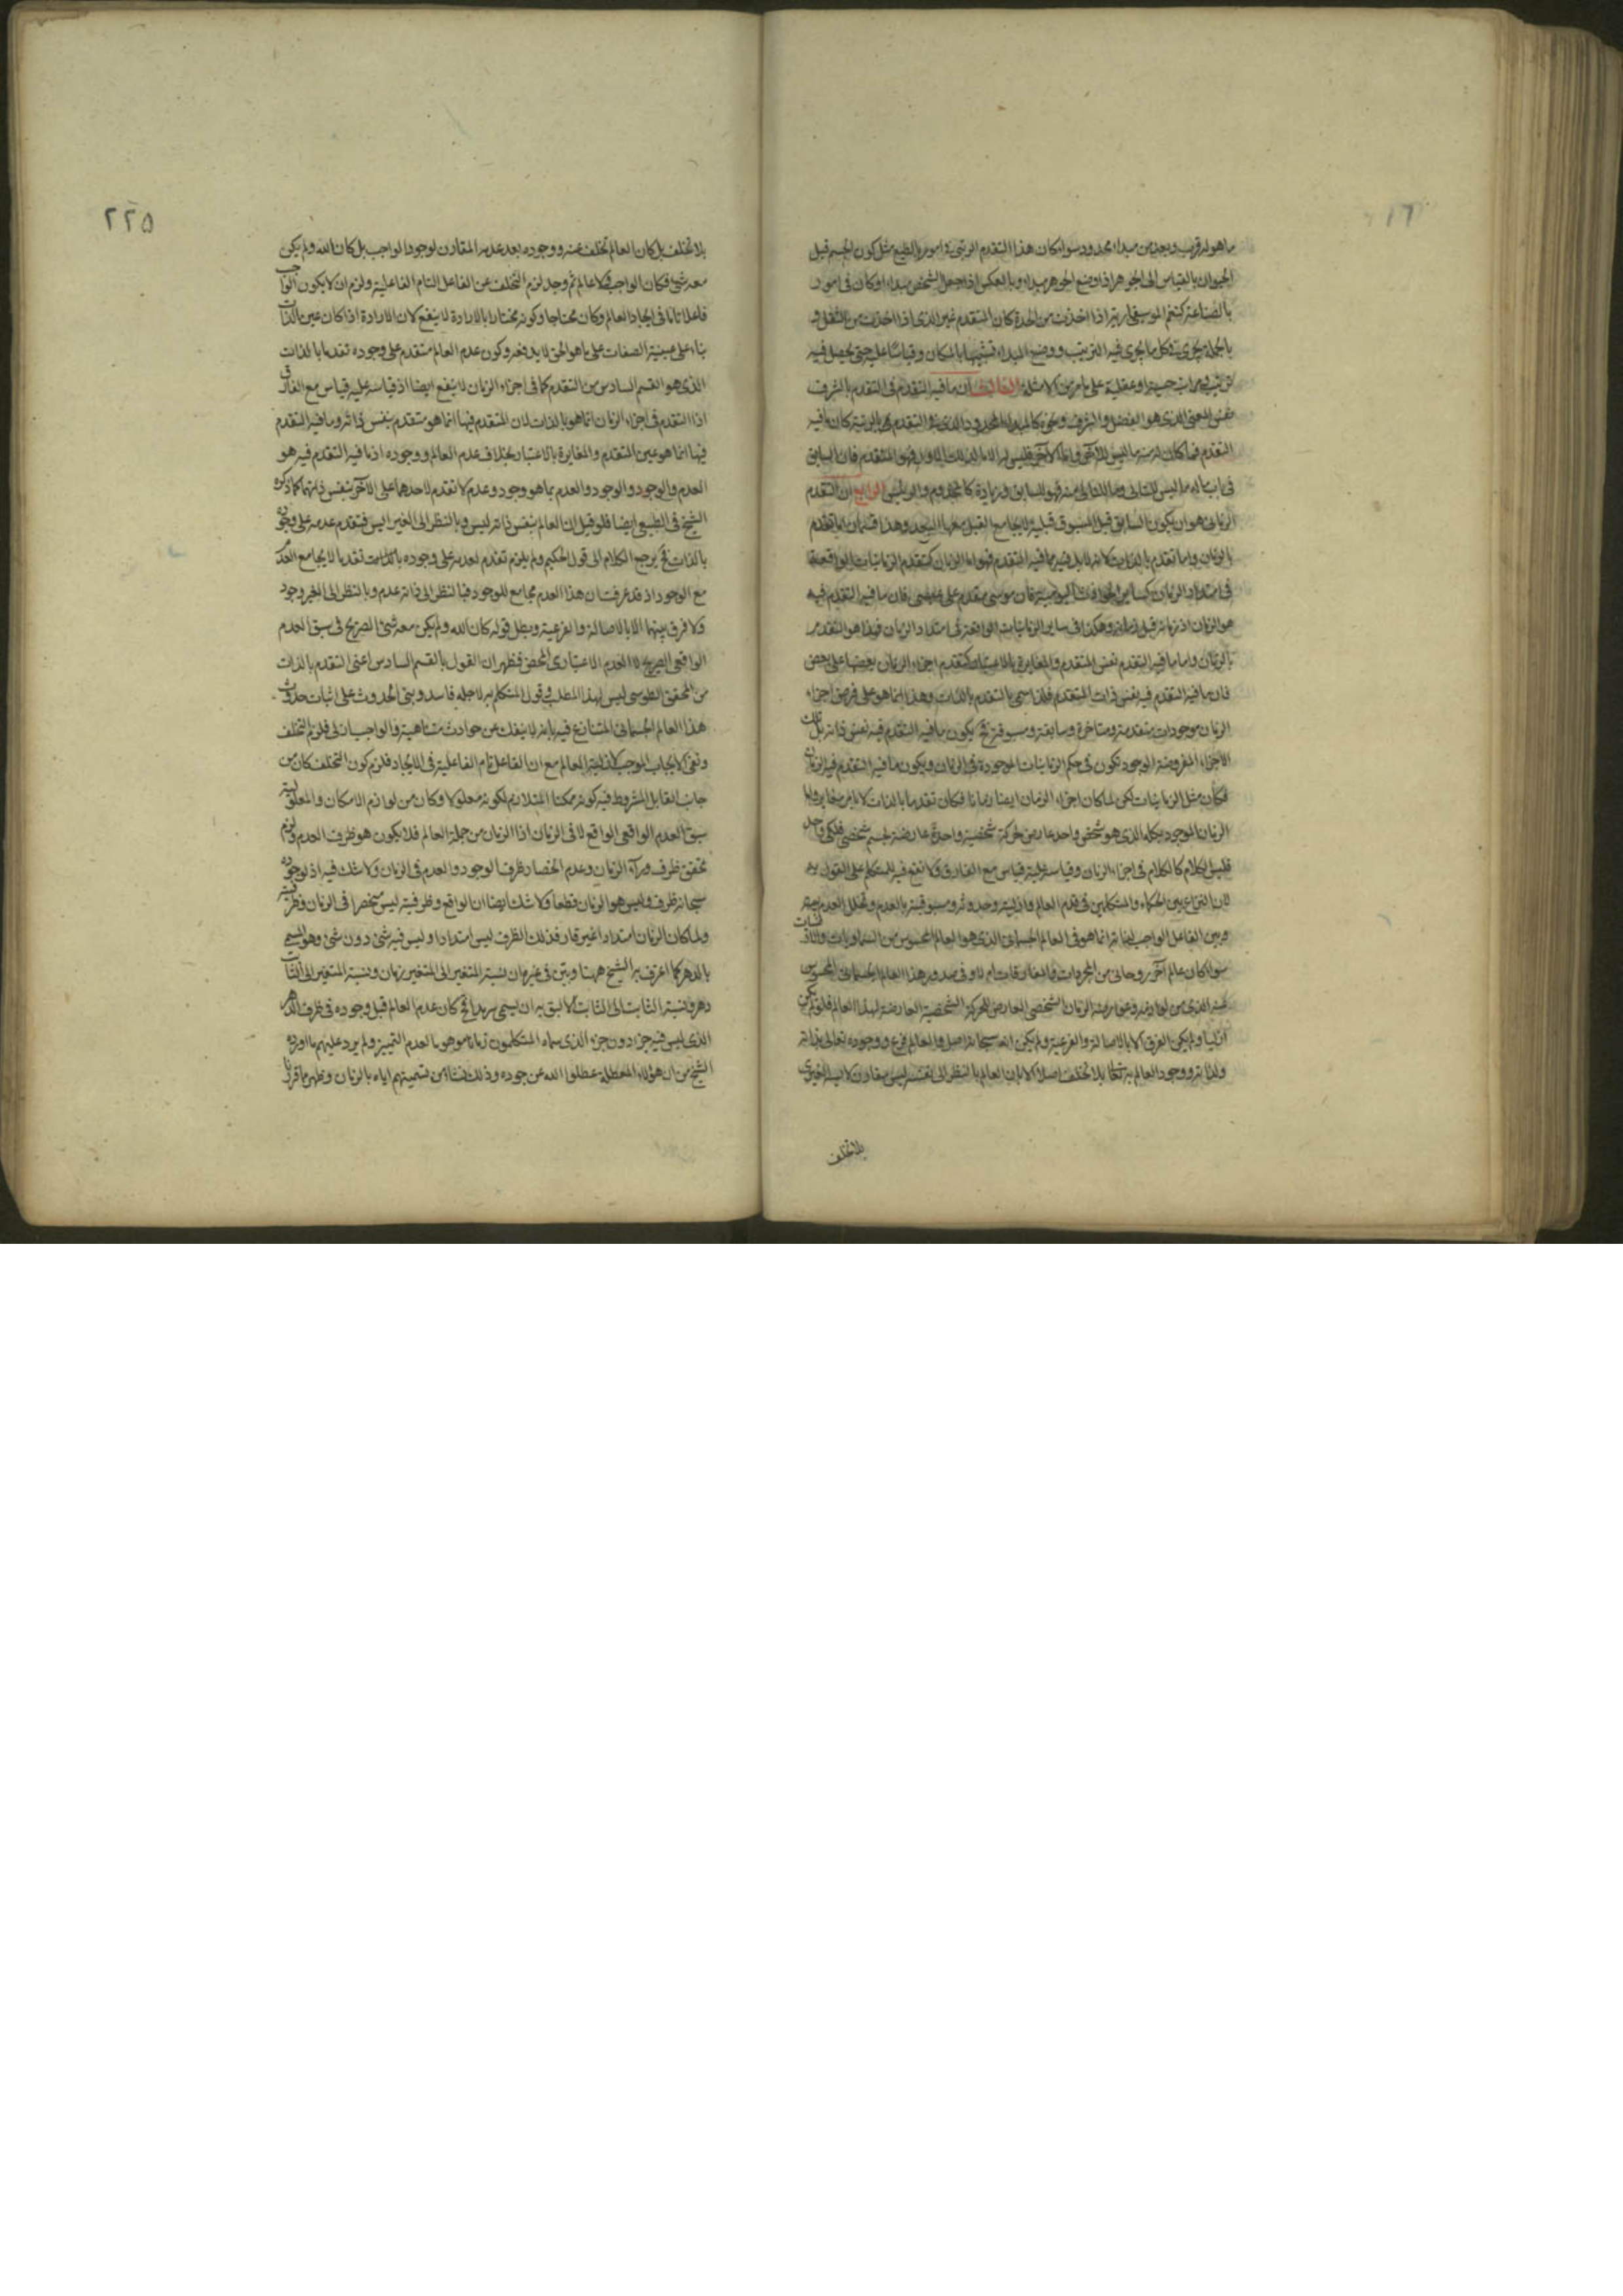 ما هو له قرب وبعد من مبداء محدود سواء كان هذا التقدم الرتبى فى امور بالطبع مثل كون الجسم قبل
الحيوان بالقياس الى الجوهر اذا وضع الجوهر مبداء وبالعكس اذا جعل الشخص مبداء او كان فى امور
بالصناعة كنغم الموسيقارية اذا اخذت من الحدة كان المتقدم غير الذى اذا اخذت من الثقل و
بالجملة يجرى فى كل ما يجرى فيه الترتيب ووضع المبداء تشبيها بالمكان وقياسا عليه حتى يحصل فيه
ترتيب ومراتب حسية او عقلية على ما مر من الامثلة الثالث ان ما فيه التقدم فى التقدم بالشرف
نفس المعنى الذى هو الفضل والشرف ونحوه كالمبداء المحدود الذى فى التقدم بالرتبة كان ما فيه
التقدم فما كان له منه ما ليس للآخر واما الآخر فليس له الا ما لذلك الاول فهو المتقدم فان السابق
فى باب ماله ما ليس للثانى وما للثانى منه فهو للسابق وزيادة كالمخدوم والرئيس الرابع ان التقدم
الزمانى هو ان يكون السابق قبل المسبوق قبلية لا يجامع القبل معها البعد وهذا قسمان اما تقدم
بالزمان واما تقدم بالذات لانه لا بد فيه مما فيه التقدم فهو اما الزمان كتقدم الزمانيات الواقعة
فى امتداد الزمان كساير الحوادث اليومية فان موسى متقدم على عيسى فان ما فيه التقدم فيه
هو الزمان اذ زمانه قبل زمانه وهكذا فى ساير الزمانيات الواقعة فى امتداد الزمان فهذا هو التقدم
بالزمان واما ما فيه التقدم نفس المتقدم والمغايرة بالاعتبار كتقدم اجزاء الزمان بعضها على بعض
فان ما فيه التقدم فيه نفس ذات المتقدم فلذا سمى بالتقدم بالذات وهذا انما هو على فرض اجزاء
الزمان موجودات متقدمة ومتاخرة وسابقة ومسبوقة فح يكون ما فيه التقدم فيه نفس ذاته بل تلك
الاجزاء المفروضة الوجود تكون فى حكم الزمانيات الموجودة فى الزمان ويكون ما فيه التقدم فيه الزمان
فكان مثل الزمانيات لكن لما كان اجزاء الزمان ايضا زمانا فكان تقدما بالذات لا بامر مغاير واما
الزمان الموجود بكله الذى هو شخص واحد عارض لحركة شخصية واحدة عارضة لجسم شخصى فلكى واحد
فليس الكلام كالكلام فى اجزاء الزمان وقياسه عليه قياس مع الفارق ولا نفع فيه للمتكلم على القول به
لان النزاع بين الحكماء والمتكلمين فى قدم العالم وازليته وحدوثه ومسبوقيته بالعدم وتخلل العدم بينه
وبين الفاعل الواجب لذاته انما هو فى العالم الجسمانى الذى هو العالم المحسوس من السماويات والثابتات
سواء كان عالم آخر روحانى من المجردات والمفارقات ام لا وفى صدور هذا العالم الجسمانى المحسوس
عنه الذى من لوازمه وعوارضه الزمان الشخصى العارض للحركة الشخصية العارضة لهذا العالم فلو لم يكن
ازليا ولم يكن الفرق الا بالاصالة والفرعية ولم يكن انه سبحانه اصل والعالم فرع ووجوده تعالى بذاته
ولذاته ووجود العالم به تعالى بلا تخلف اصلا الا بان العالم بالنظر الى نفسه ليس مقارن لايس الغيرى
بلا تخلف
٢٢٥
بلا تخلف بل كان العالم تخلف عنه ووجوده بعد عدمه المقارن لوجود الواجب بل كان الله ولم يكن
معه شئ فكان الواجب ولا عالم ثم وجد لزم التخلف عن الفاعل التام الفاعلية ولزم ان لا يكون الواجب
فاعلا تاما فى ايجاد العالم وكان محتاجا وكونه مختارا بالارادة لا ينفع لان الارادة اذا كان عين الذات
بناء على عينية الصفات على ما هو الحق لا يدفعه وكون عدم العالم متقدم على وجوده تقدما بالذات
الذى هو القسم السادس من التقدم كما فى اجزاء الزمان لا ينفع ايضا اذ قياسه عليه قياس مع الفارق
اذ التقدم فى اجزاء الزمان انما هو بالذات لان المتقدم فيها انما هو متقدم بنفس ذاته وما فيه التقدم
فيها انما هو عين المتقدم والمغايرة بالاعتبار بخلاف عدم العالم ووجوده اذ ما فيه التقدم فيه هو
العدم والوجود والوجود والعدم بما هو وجود وعدم لا تقدم لاحدهما على الآخر بنفس ذاتهما كما ذكره
الشيخ فى الطبيعى ايضا فلو قيل ان العالم بنفس ذاته ليس وبالنظر الى الغير ايس فيتقدم عدمه على وجوده
بالذات فح يرجع الكلام الى قول الحكيم ولم يلزم تقدم لعدمه على وجوده بالذات تقدما لا يجامع العدم
مع الوجود اذ قد عرفت ان هذا العدم مجامع للوجود فبالنظر الى ذاته عدم وبالنظر الى الغير وجود
ولا فرق بينهما الا بالاصالة والفرعية وبطل قوله كان الله ولم يكن معه شئ الصريح فى سبق العدم
الواقعى الصريح لا العدم الاعتبارى المحض فظهر ان القول بالقسم السادس اعنى التقدم بالذات
من المحقق الطوسى ليس لهذا المطلب وقول المتكلم به لاجله فاسد وبنى الحدوث على اثبات حدوث
هذا العالم الجسمانى المتنازع فيه بانه لا ينفك عن حوادث متناهية والواجب ازلى فلزم التخلف
ونفى الايجاب الموجب لازلية العالم مع ان الفاعل تام الفاعلية فى الايجاد فلزم كون التخلف كان من
جانب القابل المشروط فيه كونه ممكنا المتلازم لكونه معلولا وكان من لوازم الامكان والمعلولية
سبق العدم الواقعى الواقع لا فى الزمان اذ الزمان من جملة العالم فلا يكون هو ظرف العدم ولزم
تحقق ظرف وراء الزمان وعدم انحصار ظرف الوجود والعدم فى الزمان ولا شك فيه اذ لوجوده
سبحانه ظرف وليس هو الزمان قطعا ولا شك ايضا ان الواقع وظرفيته ليس منحصرا فى الزمان وظرفيته
ولما كان الزمان امتدادا غير قار فذلك الظرف ليس امتدادا وليس فيه شئ دون شئ وهو المسمى
بالدهر كما اعترف به الشيخ ههنا وبين فى غيره ان نسبة المتغير الى المتغير زمان ونسبة المتغير الى الثابت
دهر ونسبة الثابت الى الثابت الاليق به ان يسمى سرمدا فح كان عدم العالم قبل وجوده فى ظرف الدهر
الذى ليس فيه جزء دون جزء الذى سماه المتكلمون زمانا موهوما لعدم التمييز ولم يرد عليهم ما اورده
الشيخ من ان هؤلاء المعطلة عطلوا الله عن جوده وذلك نشاء من تسميتهم اياه بالزمان وظهر ما قررنا